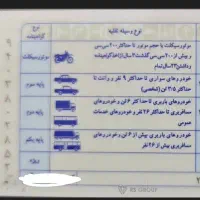 نوع وسیله نقلیه
نوع گواهینامه
موتورسیکلت با حجم موتور تا حداکثر ۲۰۰ سی سی
و بیش از ۲۰۰ سی سی
موتورسیکلت
خودروهای سواری تا حداکثر ۹ نفر و وانت تا
حداکثر ۳/۵ تن (شخصی)
پایه سوم
خودروهای باری تا حداکثر ۶ تن و خودروهای
مسافربری تا حداکثر ۲۶ نفر و خودروهای خدمات
عمومی
پایه دوم
خودروهای باری بیش از ۶ تن و خودروهای
مسافربری بیش از ۲۶ نفر
پایه یکم
ویژه